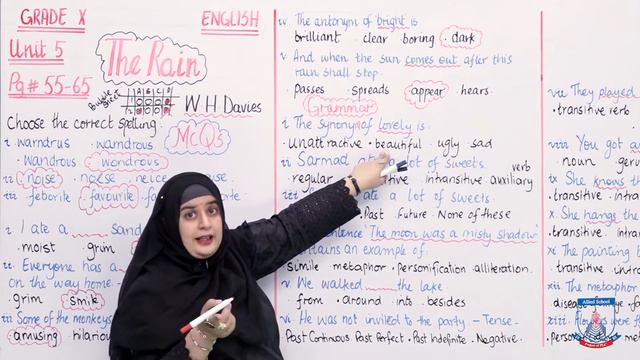 GRADE X
ENGLISH
Unit 5
Pg# 55-65
The Rain
Bubble Sheet
W H Davies
Choose the correct spelling.
MCQs
i. warndrus . wamdrous
. wandrous . wondrous
ii. noise . noize . neuce
iii feborite . favourite
i. I ate a ___ sand
. moist grim
ii. Everyone has a
on the way home
grim smile
iii Some of the monkeys
amusing hilario
iv. The antonym of bright is
brilliant . clear boring . dark
v. And when the sun comes out after this
rain shall stop.
Passes . spreads appear . hears
Grammar
i. The synonym of lovely is:
Unattractive . beautiful . ugly sad
ii. Sarmad ate a lot of sweets. verb
regular intransitive auxiliary
iii ate a lot of sweets.
Past Future . None of these
"The moon was a misty shadow"
contains an example of:
simile metaphor . personification alliteration.
v. We walked ___ the lake.
. from . around . into . besides
vi. He was not invited to the party - Tense-
Past Continous Past Perfect . Past Indefinite . Negative.
vii. They played
. transitive verb
viii You got
. noun
ix She knows
. transitive
x. She hangs the
. transitive
xi The painting
transitive
xii The metaphor
xiii
Allied School